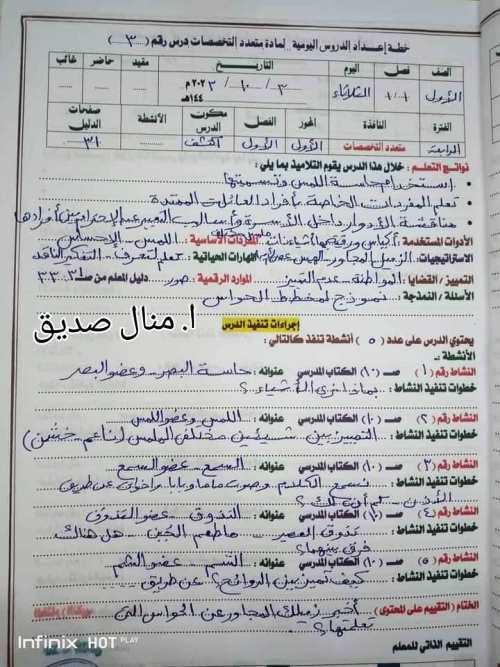 خطة إعداد الدروس اليومية لمادة متعدد التخصصات درس رقم (٣)
الصف فصل اليوم التاريخ مقيد حاضر غائب
الأول ١/١ الثلاثاء ٣ / ١٠ / ٢٠٢٣م
١٤٤هـ
الفترة النافذة المحور الفصل مكون الدرس الأنشطة صفحات الدليل
الرابعة متعدد التخصصات الأول الأول اكتشف ٣١
نواتج التعلم : خلال هذا الدرس يقوم التلاميذ بما يلي:
• استخدام حاسة اللمس وتسميتها
• تعلم المفردات الخاصة بأفراد العائلات الممتدة
• مناقشة الأدوار داخل الأسرة وأساليب التعبير عن الاحترام بين أفرادها
الأدوات المستخدمة : أكياس ورقية بها أشياء ذات ملمس مختلف المفردات الأساسية : اللمس - الإحساس
الاستراتيجيات: الزميل المجاور - الهمس المهارات الحياتية : تعلم لتعرف - التفكير الناقد
التمييز / القضايا : المواطنة - عدم التمييز الموارد الرقمية : صور دليل المعلم من صـ ٣٣،٣
الأسئلة / النمذجة : نموذج لمخطط الحواس
ا. منال صديق
إجراءات تنفيذ الدرس
يحتوي الدرس على عدد (٥) أنشطة تنفذ كالتالي:
الأنشطة:
النشاط رقم (١) صـ (١٠) الكتاب المدرسي عنوانه : حاسة البصر - وعضو البصر
خطوات تنفيذ النشاط : بماذا نرى الأشياء ؟
النشاط رقم (٢) صـ (١٠) الكتاب المدرسي عنوانه : اللمس وعضو اللمس
خطوات تنفيذ النشاط : التمييز بين شيئين مختلفي الملمس (ناعم - خشن)
النشاط رقم (٣) صـ (١٠) الكتاب المدرسي عنوانه : السمع - عضو السمع
خطوات تنفيذ النشاط : نسمع الكلام وصوت ماما وبابا وإخواتي عن طريق
الأذن - كم أذن لك ؟
النشاط رقم (٤) صـ (١٠) الكتاب المدرسي عنوانه : التذوق - عضو التذوق
خطوات تنفيذ النشاط : تذوق العصير - ما طعم الجبن - هل هناك
فرق بينهما ؟
النشاط رقم (٥) صـ (١٠) الكتاب المدرسي عنوانه : الشم - عضو الشم
خطوات تنفيذ النشاط : كيف تميز بين الروائح ؟ عن طريق
الختام (التقييم على المحتوى) أخبر زميلك المجاور عن الحواس التي
تعلمتها ؟
التقييم الذاتي للمعلم
Infinix HOT PLAY